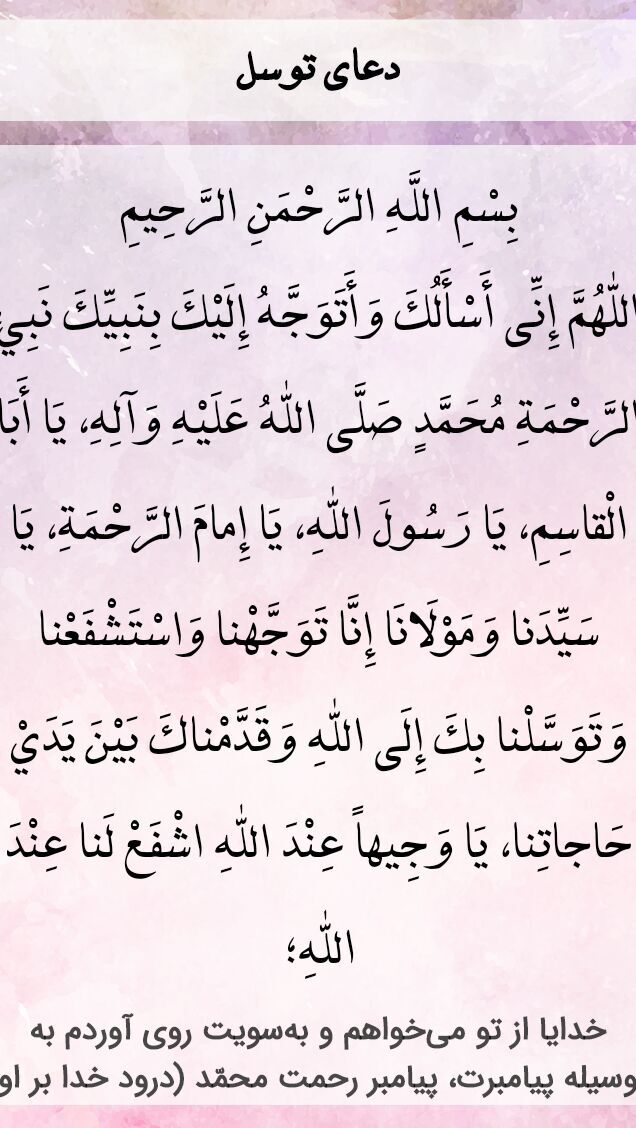 دعای توسل
بِسْمِ اللَّهِ الرَّحْمَنِ الرَّحِيمِ
اللّٰهُمَّ إِنِّى أَسْأَلُكَ وَأَتَوَجَّهُ إِلَيْكَ بِنَبِيِّكَ نَبِيِّ
الرَّحْمَةِ مُحَمَّدٍ صَلَّى اللّٰهُ عَلَيْهِ وَآلِهِ، يَا أَبَا
الْقاسِمِ، يَا رَسُولَ اللّٰهِ، يَا إِمامَ الرَّحْمَةِ، يَا
سَيِّدَنا وَمَوْلَانَا إِنَّا تَوَجَّهْنا وَاسْتَشْفَعْنا
وَتَوَسَّلْنا بِكَ إِلَى اللّٰهِ وَقَدَّمْناكَ بَيْنَ يَدَيْ
حَاجاتِنا، يَا وَجِيهاً عِنْدَ اللّٰهِ اشْفَعْ لَنا عِنْدَ
اللّٰهِ؛
خدایا از تو می‌خواهم و به‌سویت روی آوردم به
وسیله پیامبرت، پیامبر رحمت محمّد (درود خدا بر او